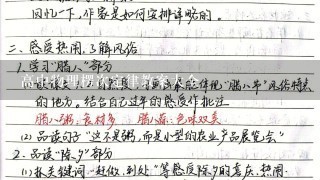 回忆一下，作家是如何安排详略的。
二、感受热闹，了解风俗
1.学习“腊八”部分
高中物理楞次定律教案大全
体现“腊八节”风俗特点
的地方。结合自己过年的感受作批注
腊八粥：食材多 腊八蒜：色味双美
(2)品读句子“这不是粥，而是小型的农业产品展览会”
2.品读“除夕”部分
(1)抓关键词“赶做、到处”等感受除夕的喜庆、热闹.